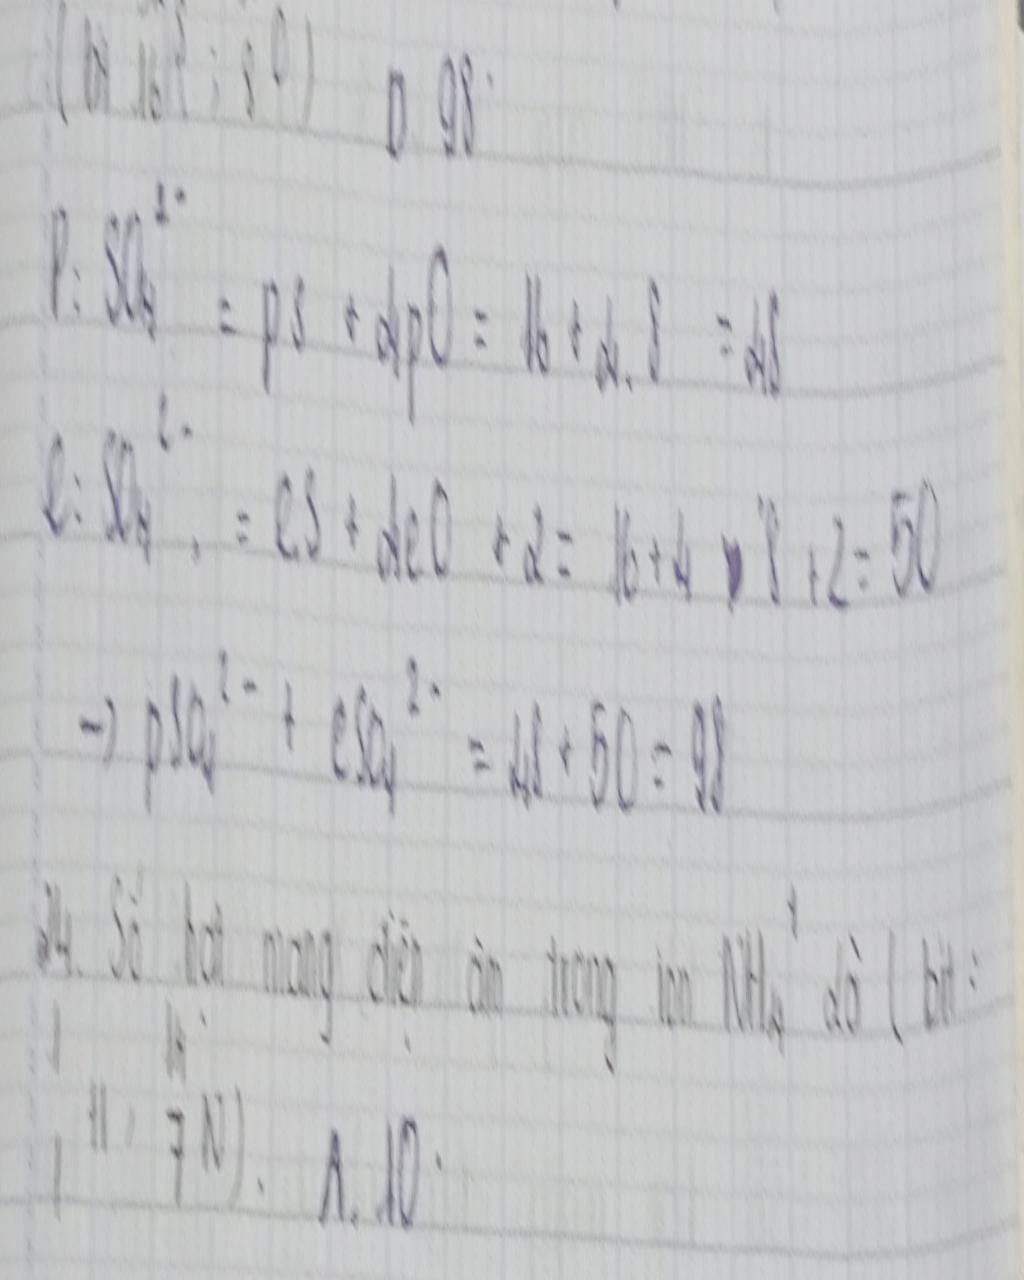 (bt 16S ; 8O) D 98.
P: SO₄²⁻ = pS + 4pO = 16 + 4.8 = 48
e: SO₄²⁻ = eS + 4eO + 2 = 16 + 4 8 + 2 = 50
→ pSO₄²⁻ + eSO₄²⁻ = 48 + 50 = 98
24. Số hạt mang điện âm trong ion NH₄⁺ là ( bit:
¹₁H, ¹⁴₇N). A. 10.